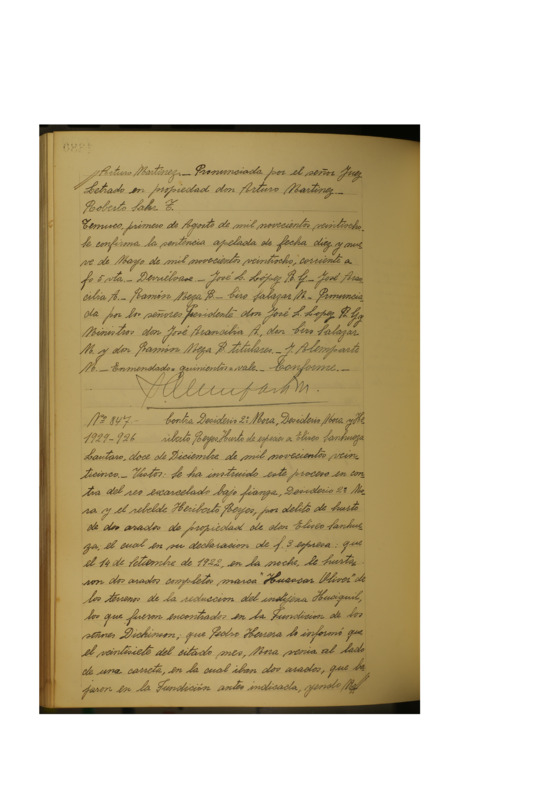 Arturo Martinez._ Pronunciada por el señor Juez
Letrado en propiedad don Arturo Martinez._
Roberto Sahr T.
Temuco, primero de Agosto de mil novecientos veintiocho.
Se confirma la sentencia apelada de fecha diez y nue
ve de Mayo de mil novecientos veintiocho, corriente a
fs 5 vta._ Devuélvase._ José L. López R. G_ José Aran
cibia A._ Ramón Meza B._ Ciro Salazar M._ Pronuncia
da por los señores Presidente don José L. López R. G y
Ministros don José Arancibia A, don Ciro Salazar
M. y don Ramon Meza B. titulares._ J. Alemparte
M._ Enmendado=quinientos=vale._ Conforme._
Nº 847-
1929-926
Contra Desiderio 2º Mora, Desiderio Mora y He
riberto Reyes Hurto de especies a Eliseo Sanhueza
Lautaro, doce de Diciembre de mil novecientos vein
ticinco._ Vistos: Se ha instruido este proceso en con
tra del reo excarcelado bajo fianza, Desiderio 2º Mo
ra y el rebelde Heriberto Reyes, por delito de hurto
de dos arados de propiedad de don Eliseo Sanhue
za, el cual en su declaracion de f. 3 expresa: que
el 14 de Setiembre de 1922, en la noche, le hurta-
ron dos arados completos marca "Huascar Oliver" de
los terrenos de la reduccion del indíjena Huaiquil,
los que fueron encontrados en la Fundicion de los
señores Dickinson; que Pedro Herrera le informó que
el veintisiete del citado mes, Mora venia al lado
de una carreta, en la cual iban dos arados, que ba
jaron en la Fundición antes indicada,